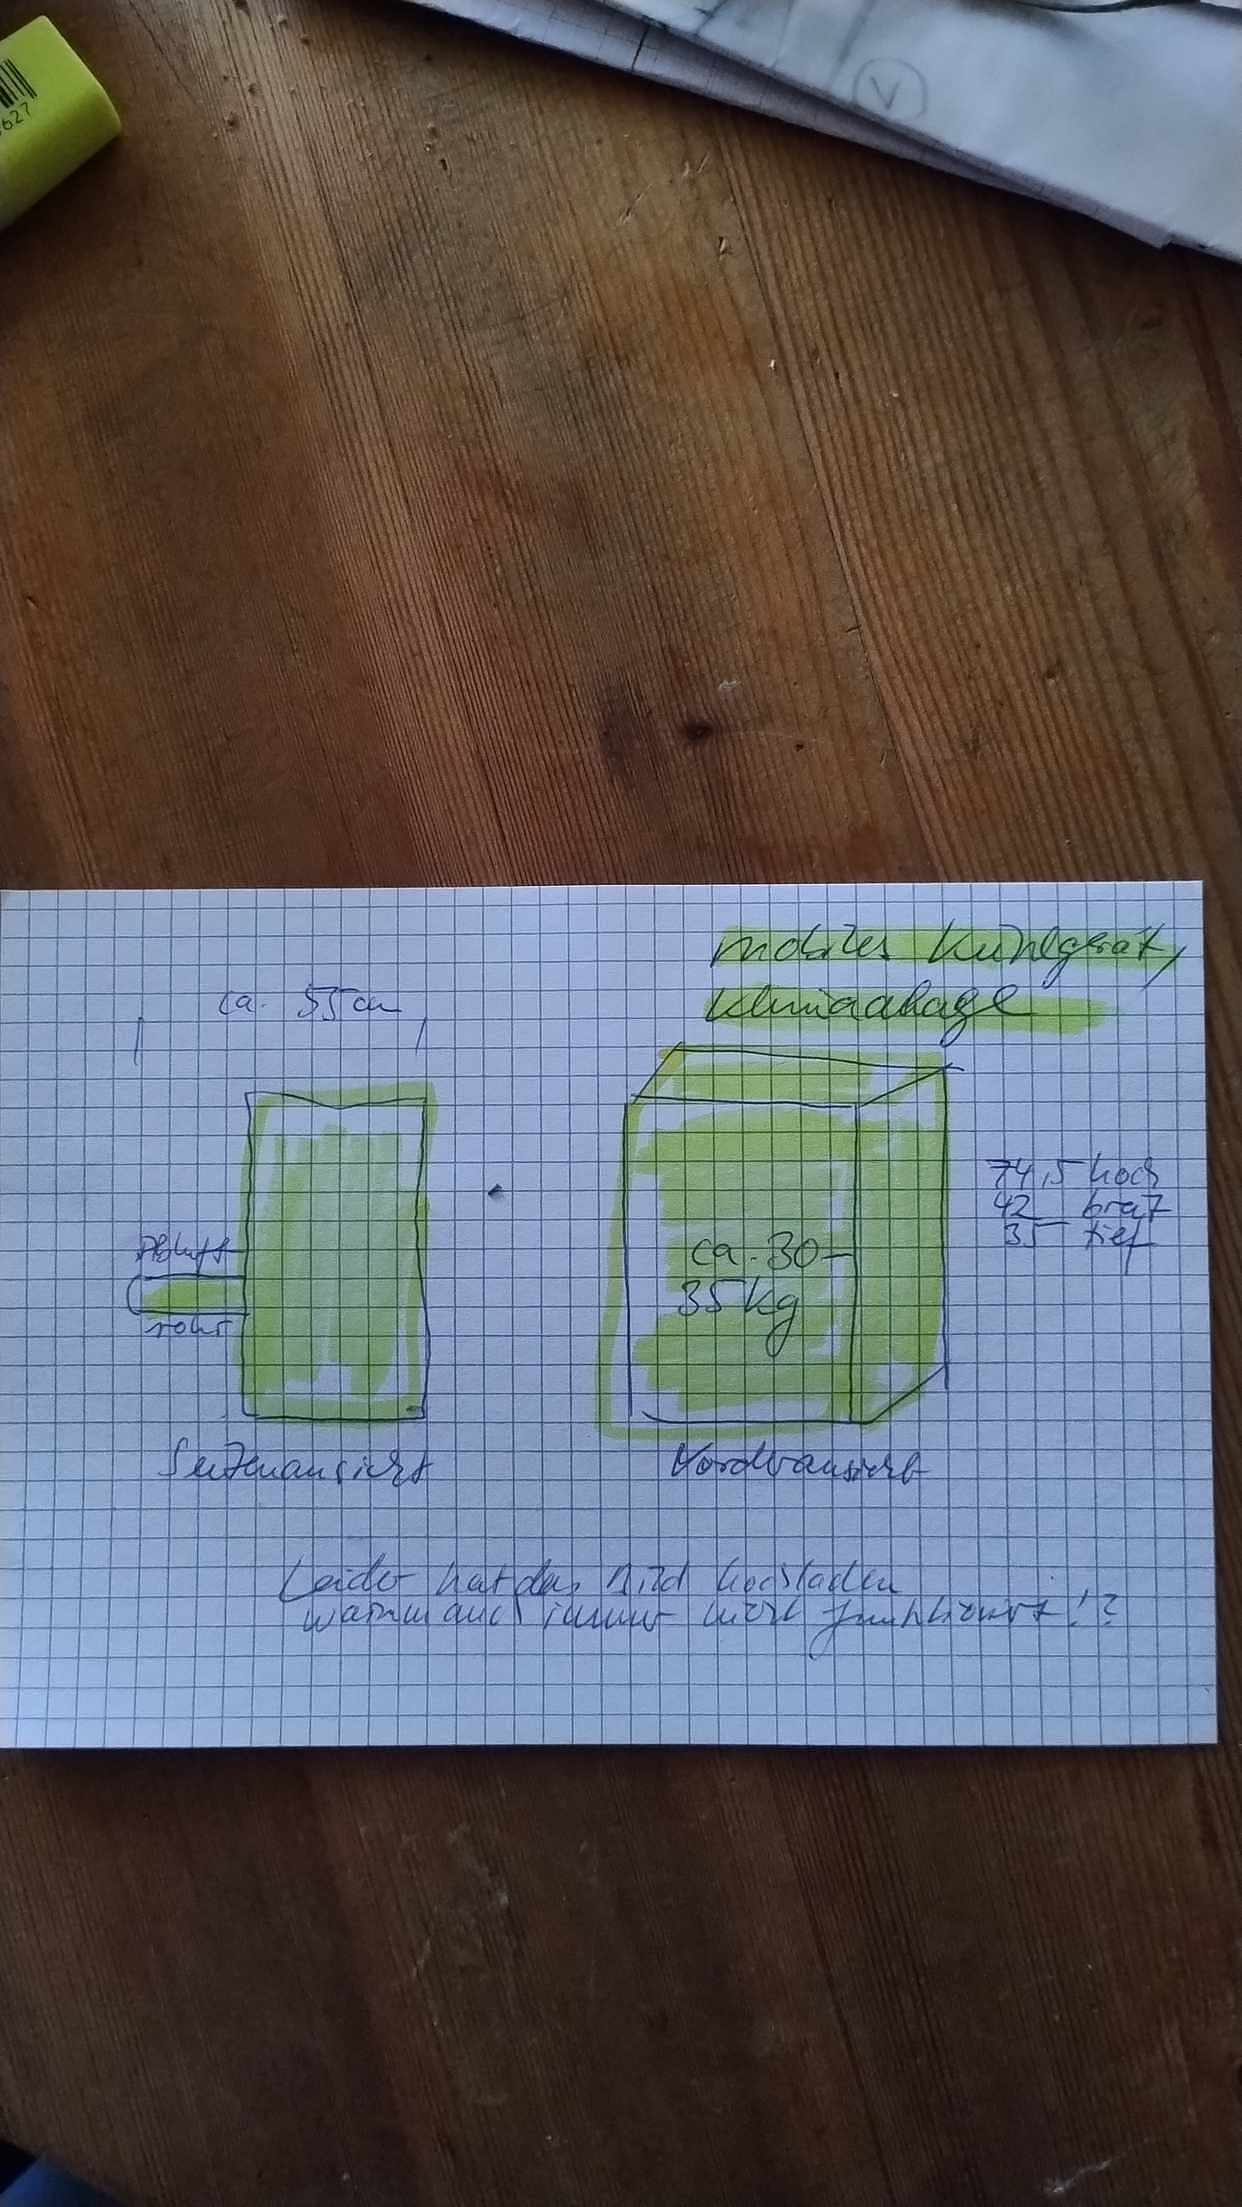 627
V
mobiles Kühlgerät,
Klimaanlage
ca. 55 cm
74,5 hoch
42 breit
35 tief
Abluft
rohr
ca. 30-
35 kg
Seitenansicht
Vorderansicht
Leider hat das Bild hochladen
warum auch immer nicht funktioniert!?